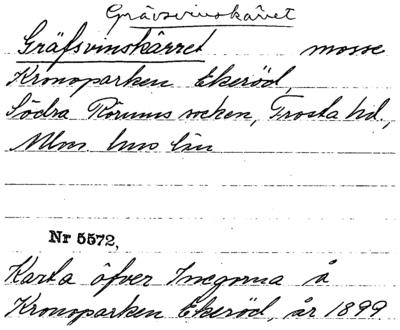 Grävsvinskärret
Gräfsvinskärret mosse
Kronoparken Ekeröd,
Södra Rörums socken, Frosta hd.,
Mlm. hus län
Nr 5572,
Karta öfver Inegorna å
Kronoparken Ekeröd, år 1899.